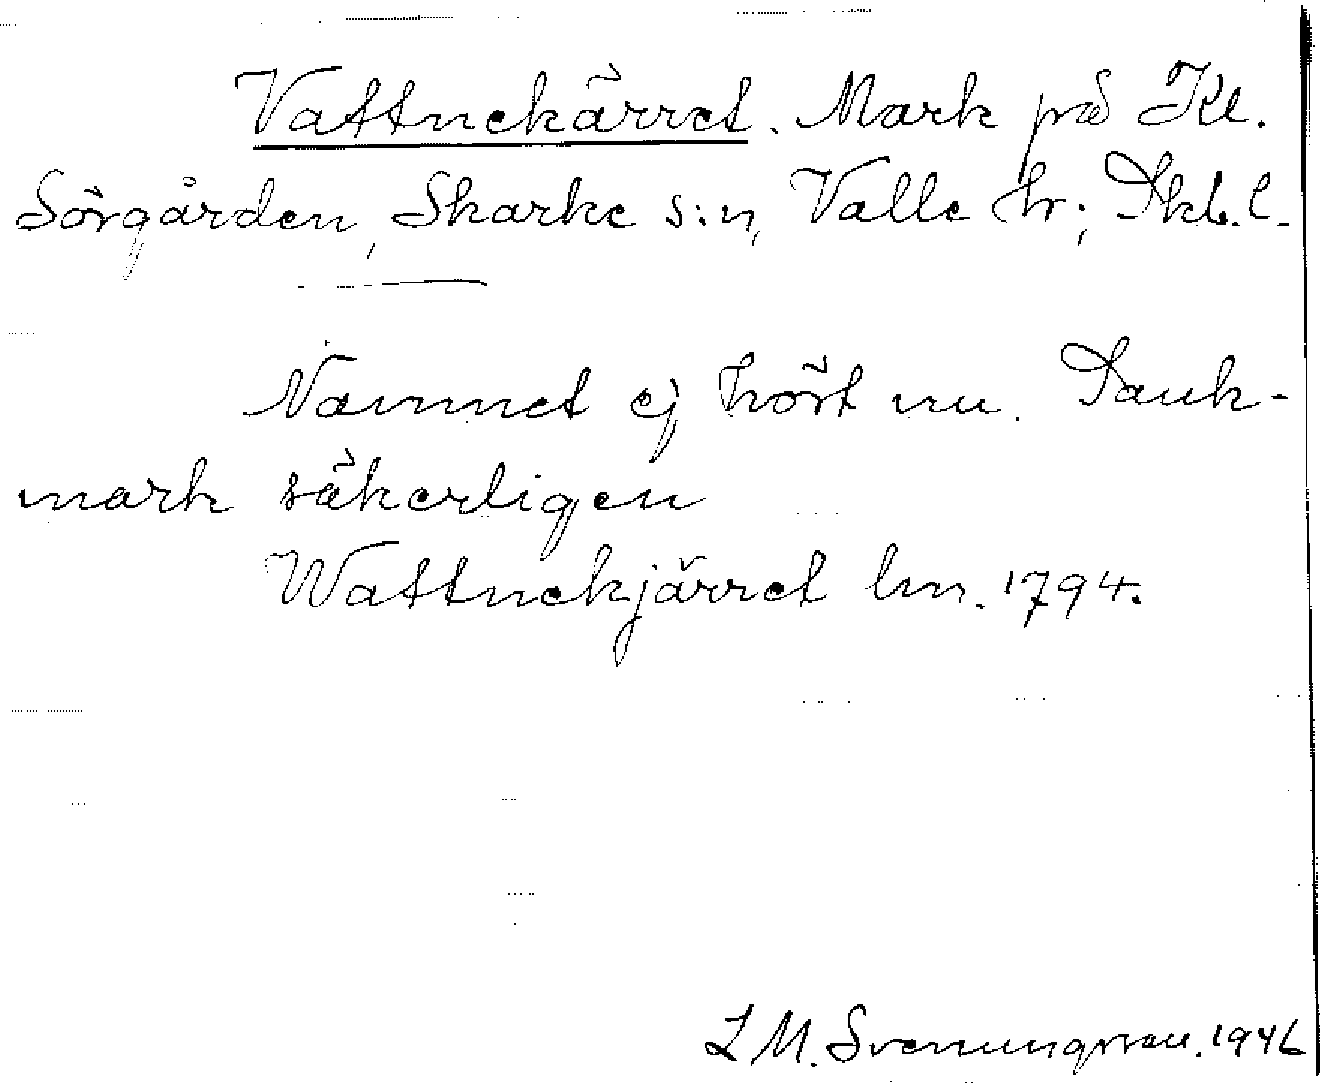 Vattnekärret. Mark på Kl.
Sörgården, Skarke s:n, Valle hr; Skb.l.
Namnet ej hört nu. Sank-
mark säkerligen
Wattnekjärret lm. 1794.
L M. Svenungsson. 1946